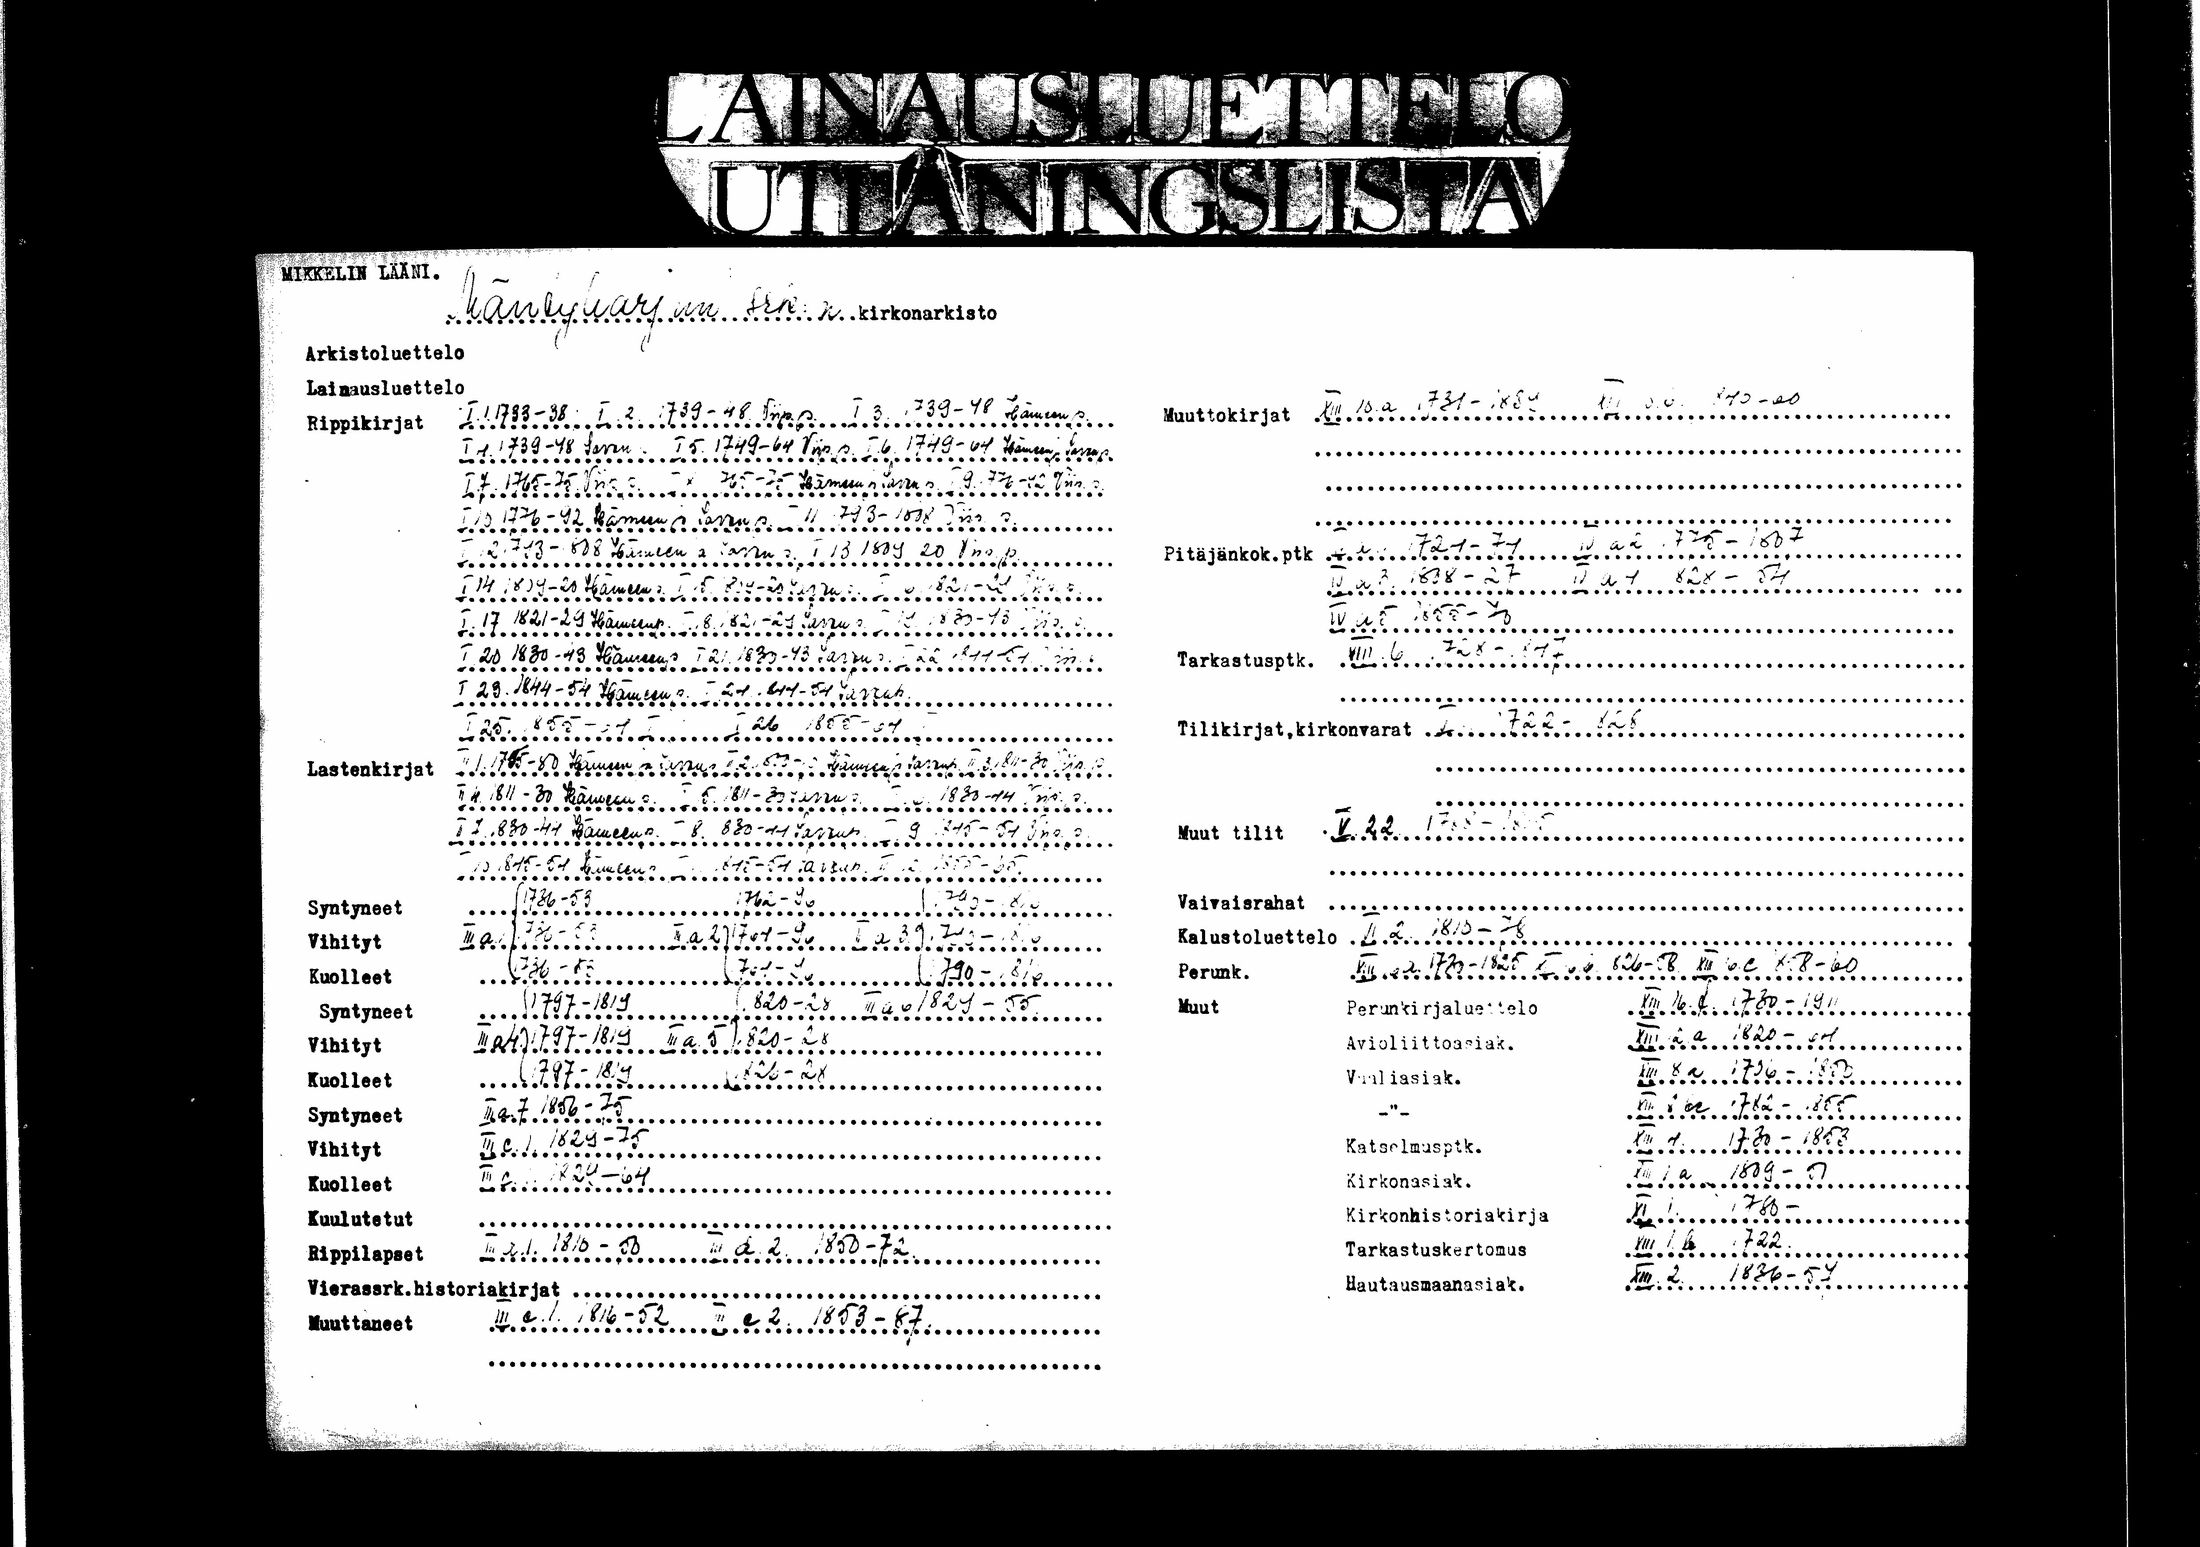 LAINAUSLUETTELO
UTLÅNINGSLISTA
MIKKELIN LÄÄNI.
Mäntyharjun srk:n kirkonarkisto
Arkistoluettelo
Lainausluettelo
Rippikirjat I.1.1733-38. I.2. 1739-48 Viip.p. I 3. 1739-48 Hämeen p.
I 4. 1739-48 Savon I 5. 1749-64 Viip.p. I.6. 1749-64 Hämeen p. Savon p.
I 7. 1765-75 Viip.p. I 765-75 Hämeen p Savon p. I 9. 776-92 Viip.p.
I 10 1776-92 Hämeen p Savon p. I 11 793-1808 Viip p.
I 12 1793-1808 Hämeen p Savon p. I 13 1809 20 Viip.p.
I 14 1809-20 Hämeen p. I 15. 809-20 Savon p. 1821-29 Viip.p.
I. 17 1821-29 Hämeen p. I 18. 1821-29 Savon p. I 19. 1830-43 Viip. p.
I 20 1830-43 Hämeen p I 21. 1830-43 Savon p. I 22 1844-54 Viip.p.
I 23. 1844-54 Hämeen p. I 24. 844-54 Savon p.
I 25. 1855-64 I I 26 1855-64 I
Lastenkirjat II 1. 1765-80 Hämeen p Savon p II 2. Hämeen p Savon p. II 3. 1811-30 Viip.p.
II 4. 1811-30 Hämeen p. II 5. 1811-30 Savon p. 1830-44 Viip.p.
II 7. 1830-44 Hämeen p. II 8. 830-44 Savon p. II 9 1845-54 Viip.p.
II 10 1845-54 Hämeen p. 1845-54 Savon p. II 12. 1855-65.
Syntyneet 1736-53 1762-90 1790-1816
Vihityt III a 1 1736-53 III a 2 1764-90 III a 3 1790-1816
Kuolleet 1736-53 1764-90 1790-1816
Syntyneet 1797-1819 1820-28 III a 6 1829-55.
Vihityt III a 4. 1797-1819 III a. 5 1820-28
Kuolleet 1797-1819 1820-28
Syntyneet III a. 7 1856-75
Vihityt III c. 1. 1829-75
Kuolleet 1829-64
Kuulutetut
Rippilapset 1. 1810-50 III d. 2. 1850-72.
Vierassrk.historiakirjat
Muuttaneet III e. 1. 1816-52 III e 2. 1853-87.
Muuttokirjat XIII 10.a 1731-1884
Pitäjänkok.ptk 1721-71 IV a 2 1775-1807
IV a 3. 1808-27 IV a 4 1828-54
IV a 5 1855-70
Tarkastusptk. VIII. 6 1728-1847
Tilikirjat,kirkonvarat 1722-1828
Muut tilit V. 22.
Vaivaisrahat
Kalustoluettelo VI. 2. 1810-78
Perunk. 1730-1825 826-58. XIII 6 c 858-60
Muut Perunkirjaluettelo 1730-1911
Avioliittoasiak. XIII. 2 a 1820-64
Vaaliasiak. XIII. 8 a 1736-1850
-"- 1782-1855
Katselmusptk. XIII 4. 1730-1853
Kirkonasiak. XIII 1 a 1809-51
Kirkonhistoriakirja XI 1. 1760-
Tarkastuskertomus XIII 1. b 1722.
Hautausmaanasiak. XIII. 2. 1836-57